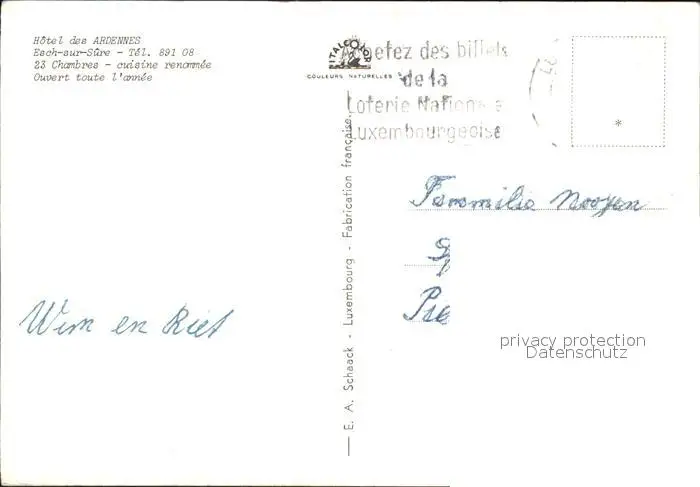 Hôtel des ARDENNES
Esch-sur-Sûre - Tél. 891 08
23 Chambres - cuisine renommée
Ouvert toute l'année
ITALCOLOR
COULEURS NATURELLES
des billets
de la
Loterie Nationale
Luxembourgeoise
*
E. A. Schaack - Luxembourg - Fabrication française.
Fammilie Nooyen
Wim en Riet
privacy protection
Datenschutz